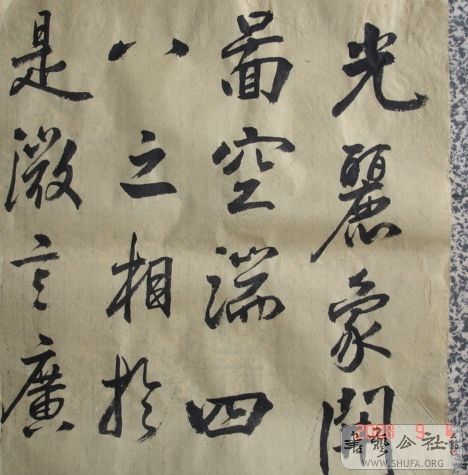 光麗象開
圖空端四
八之相於
是微言廣
書藝公社
WWW.SHUFA.ORG